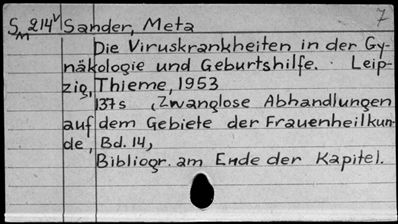 7
S_M 214V Sander, Meta
Die Viruskrankheiten in der Gy-
näkologie und Geburtshilfe. Leip-
zig, Thieme, 1953
137 s (Zwanglose Abhandlungen
auf dem Gebiete der Frauenheilkun-
de, Bd. 14)
Bibliogr. am Ende der Kapitel.